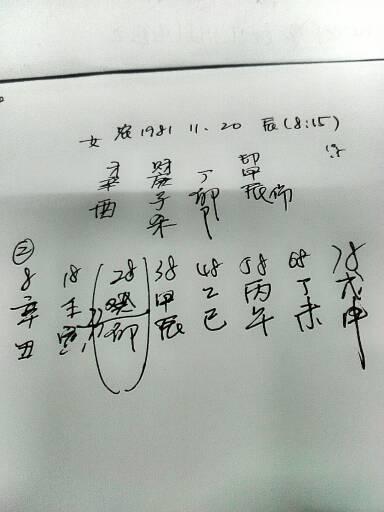 女 农1981 11.20 辰(8:15)
才 财 印
辛 庚 丁 甲
酉 子 卯 辰 伤
杀
②
8 18 (28) 38 48 58 68 78
辛 壬 癸 甲 乙 丙 丁 戊
丑 寅 卯 辰 巳 午 未 申